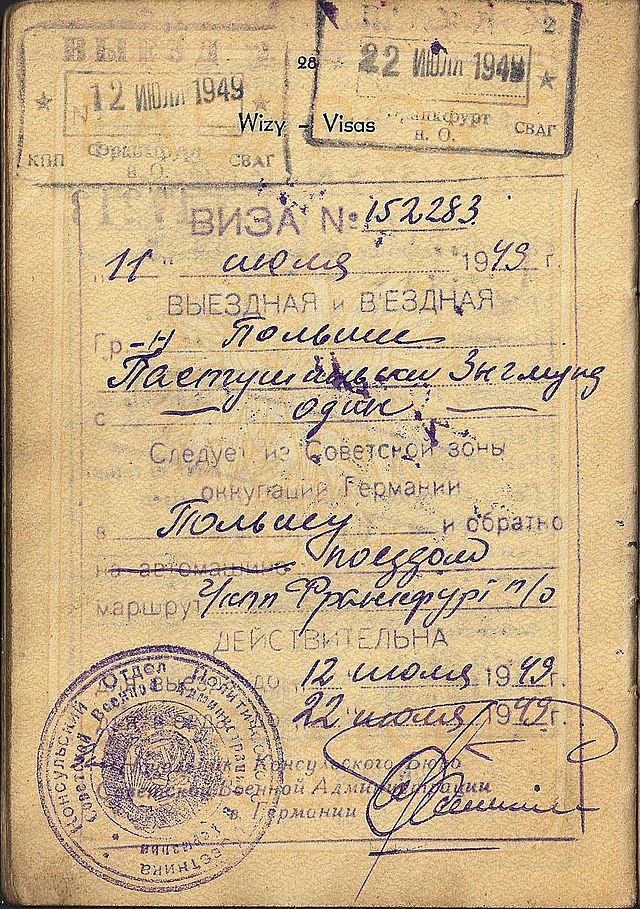 ВЫЕЗД 2
12 ИЮЛЯ 1949
КПП Франкфурт СВАГ
н. О.
28
2
22 ИЮЛЯ 1949
Франкфурт
н. О. СВАГ
Wizy – Visas
ВИЗА № 152283
"11" июля 1949 г.
ВЫЕЗДНАЯ и В'ЕЗДНАЯ
Гр-н Польши
Зыгмунд
с один
Следует из Советской зоны
оккупации Германии
в Польшу и обратно
на автомашине поездом
маршрут ч/кпп Франкфурт н/о
ДЕЙСТВИТЕЛЬНА
до 12 июля 1949 г.
22 июля 1949 г.
Начальник Консульского бюро
Советской Военной Администрации
в Германии
Консульский Отдел Политического Советника
Советской Военной Администрации в Германии